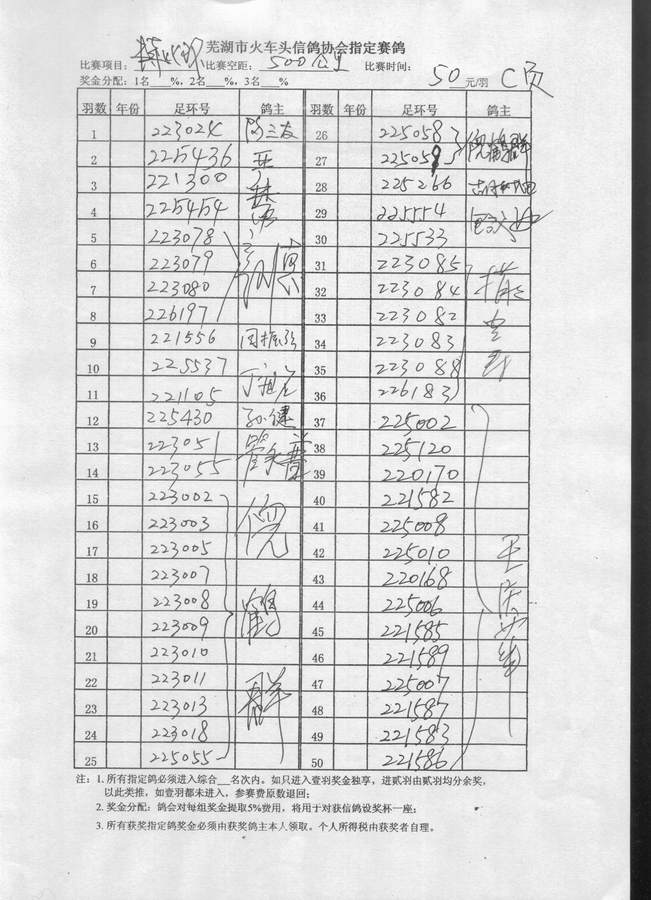 芜湖市火车头信鸽协会指定赛鸽
比赛项目： 比赛空距：500公里 比赛时间：
奖金分配：1名___%，2名___%，3名___% 50 元/羽 C页
羽数 年份 足环号 鸽主 羽数 年份 足环号 鸽主
1 223024 26 225058
2 225436 27 225059 倪鹤群
3 221300 28 225266
4 225454 29 225554
5 223078 30 225533
6 223079 31 223085
7 223080 32 223084
8 226197 33 223082
9 221556 周振强 34 223083
10 225537 35 223088
11 221105 36 226183
12 225430 孙健 37 225002
13 223051 38 225120
14 223055 39 220170
15 223002 倪 40 221582
16 223003 41 225008
17 223005 42 225010 王
18 223007 43 220168
19 223008 鹤 44 225006
20 223009 45 221585
21 223010 46 221589
22 223011 群 47 225007
23 223013 48 221587
24 223018 49 221583
25 225055 50 221586
注：1. 所有指定鸽必须进入综合__名次内。如只进入壹羽奖金独享，进贰羽由贰羽均分余奖，
以此类推，如壹羽都未进入，参赛费原数退回；
2. 奖金分配：鸽会对每组奖金提取5%费用，将用于对获信鸽设奖杯一座；
3. 所有获奖指定鸽奖金必须由获奖鸽主本人领取。个人所得税由获奖者自理。